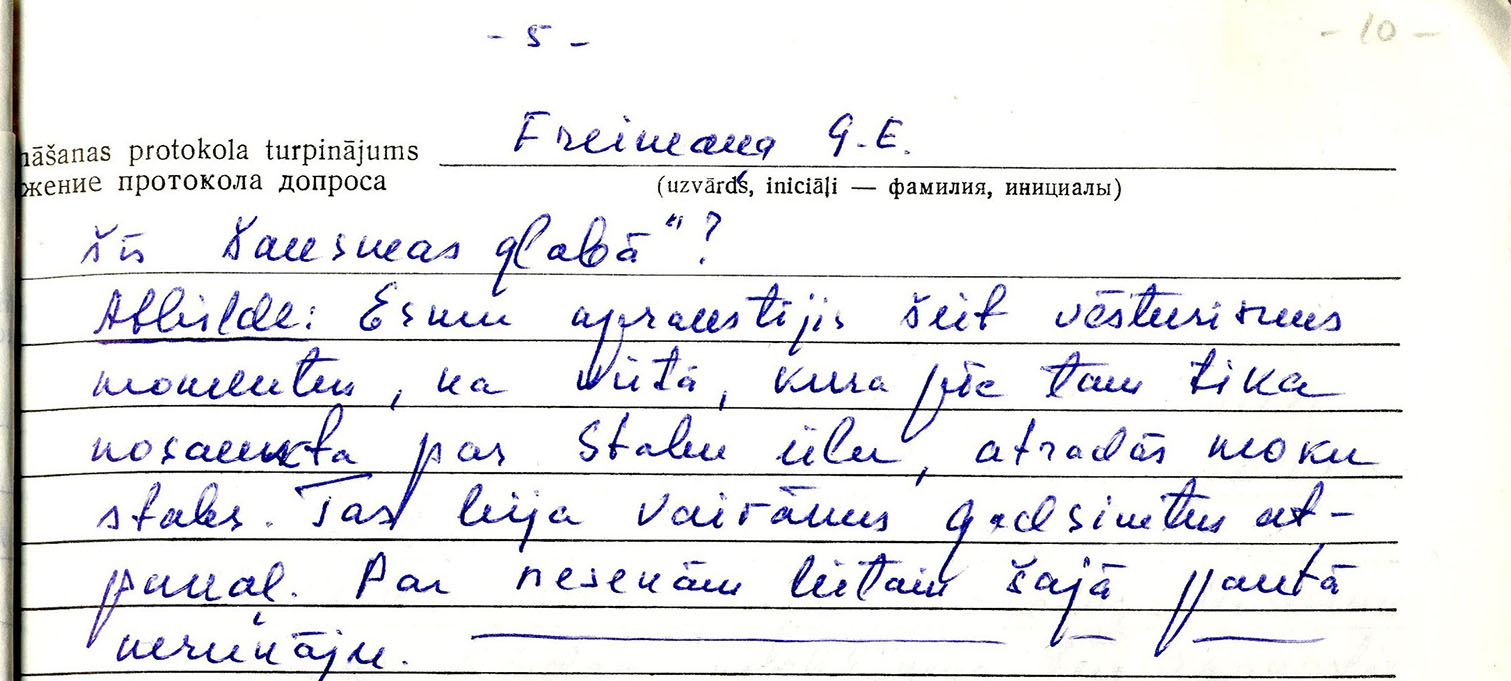 - 5 -
- 10 -
nāšanas protokola turpinājums Freimana G.E.
жение протокола допроса (uzvārds, iniciāļi — фамилия, инициалы)
šīs šausmas glabā"?
Atbilde: Esmu aprakstījis šeit vēsturisku
momentu, ka vietā, kura pēc tam tika
nosaukta par Stabu ielu, atradās moku
stabs. Tas bija vairākus gadsimtus at-
pakaļ. Par nesenām lietām šajā pantā
nerunāju.